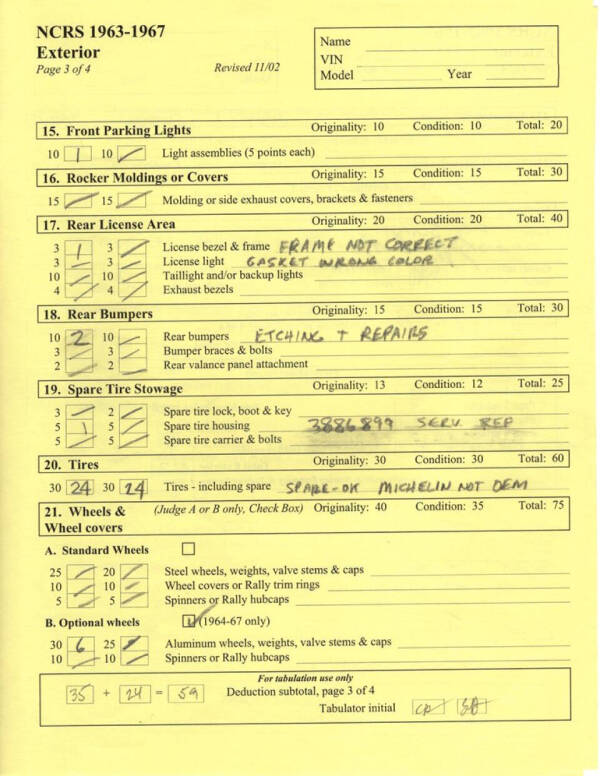 NCRS 1963-1967
Exterior
Page 3 of 4 Revised 11/02
Name
VIN
Model Year
15. Front Parking Lights Originality: 10 Condition: 10 Total: 20
10 1 10 Light assemblies (5 points each)
16. Rocker Moldings or Covers Originality: 15 Condition: 15 Total: 30
15 15 Molding or side exhaust covers, brackets & fasteners
17. Rear License Area Originality: 20 Condition: 20 Total: 40
3 1 3 License bezel & frame FRAME NOT CORRECT
3 3 License light GASKET WRONG COLOR
10 10 Taillight and/or backup lights
4 4 Exhaust bezels
18. Rear Bumpers Originality: 15 Condition: 15 Total: 30
10 2 10 Rear bumpers ETCHING + REPAIRS
3 3 Bumper braces & bolts
2 2 Rear valance panel attachment
19. Spare Tire Stowage Originality: 13 Condition: 12 Total: 25
3 2 Spare tire lock, boot & key
5 1 5 Spare tire housing 3886899 SERV REP
5 5 Spare tire carrier & bolts
20. Tires Originality: 30 Condition: 30 Total: 60
30 24 30 24 Tires - including spare SPARE-OK MICHELIN NOT OEM
21. Wheels & (Judge A or B only, Check Box) Originality: 40 Condition: 35 Total: 75
Wheel covers
A. Standard Wheels
25 20 Steel wheels, weights, valve stems & caps
10 10 Wheel covers or Rally trim rings
5 5 Spinners or Rally hubcaps
B. Optional wheels (1964-67 only)
30 6 25 Aluminum wheels, weights, valve stems & caps
10 10 Spinners or Rally hubcaps
For tabulation use only
35 + 24 = 59 Deduction subtotal, page 3 of 4
Tabulator initial